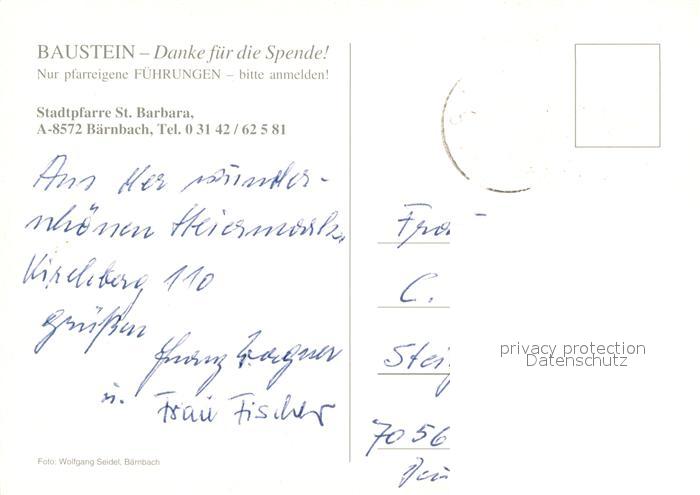 BAUSTEIN – Danke für die Spende!
Nur pfarreigene FÜHRUNGEN – bitte anmelden!
Stadtpfarre St. Barbara,
A-8572 Bärnbach, Tel. 0 31 42 / 62 5 81
Aus der wunder-
schönen Steiermark,
Kirchberg 110
grüßen
Franz Wagner
u. Frau Fischer
Foto: Wolfgang Seidel, Bärnbach
Fra
C.
Stei
7056
privacy protection
Datenschutz